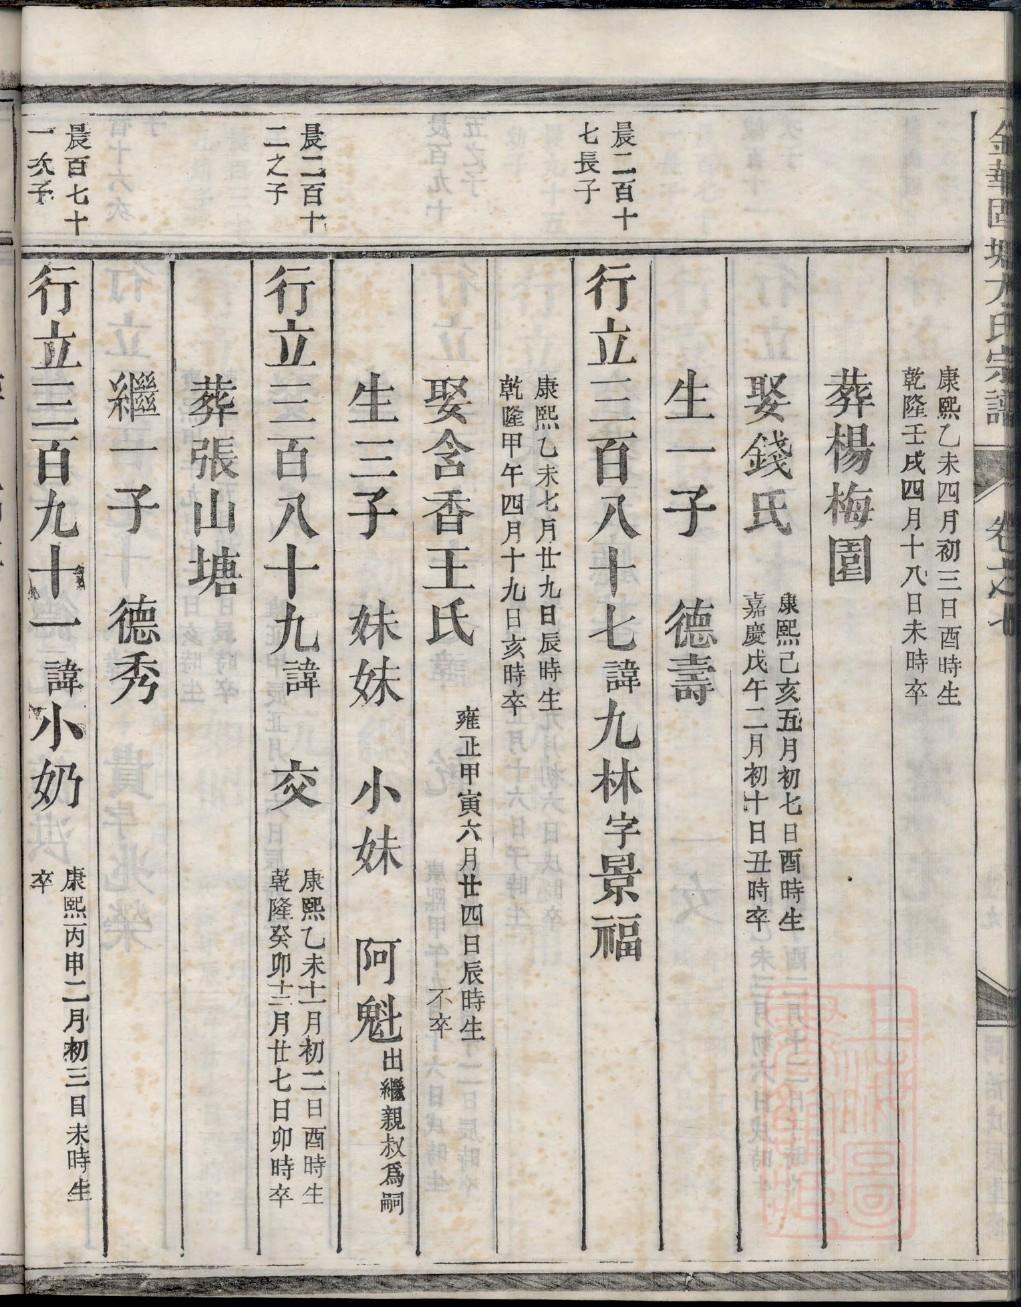 金華固塘方氏宗譜 卷之七
康熙乙未四月初三日酉時生
乾隆壬戌四月十八日未時卒
葬楊梅園
娶錢氏
康熙己亥五月初七日酉時生
嘉慶戊午二月初十日丑時卒
生一子 德壽
晨二百十
七長子
行立三百八十七諱九林字景福
康熙乙未七月廿九日辰時生
乾隆甲午四月十九日亥時卒
娶含香王氏
雍正甲寅六月廿四日辰時生
不卒
生三子 妹妹 小妹 阿魁出繼親叔爲嗣
晨二百十
二之子
行立三百八十九諱 交
康熙乙未十一月初二日酉時生
乾隆癸卯十二月廿七日卯時卒
葬張山塘
繼一子 德秀
晨百七十
一次子
行立三百九十一諱小奶
康熙丙申二月初三日未時生
卒